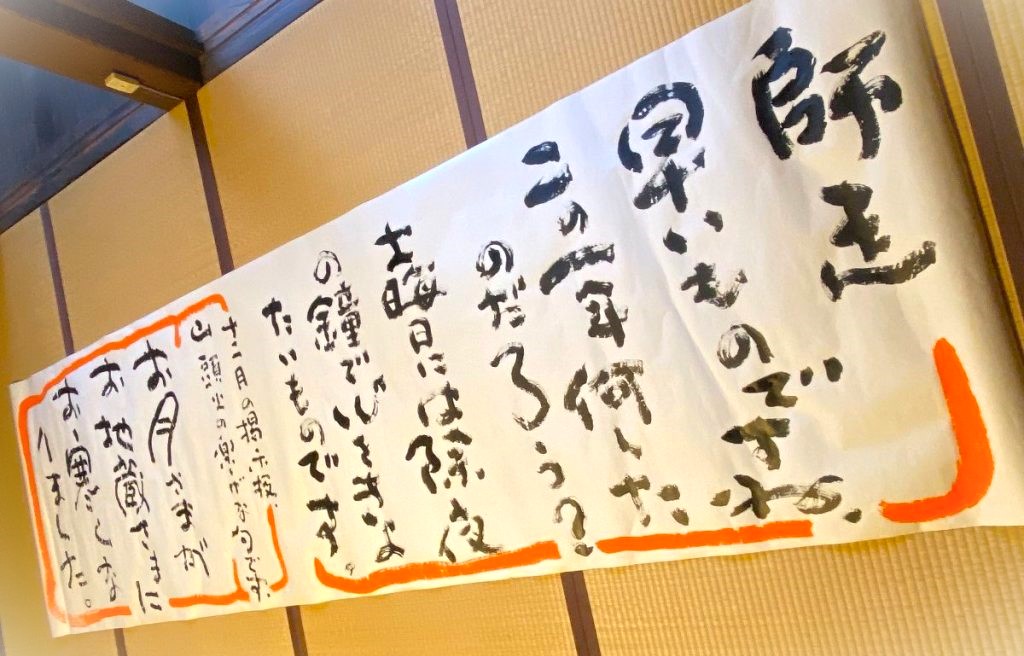 師走
早いものですね。
この一年何した
のだろう?
大晦日には除夜
の鐘で心をきよ
たいものです。
十二月の掲示板、
山頭火の句です
お月さまが
お地蔵さまに
お寒くな
りました。